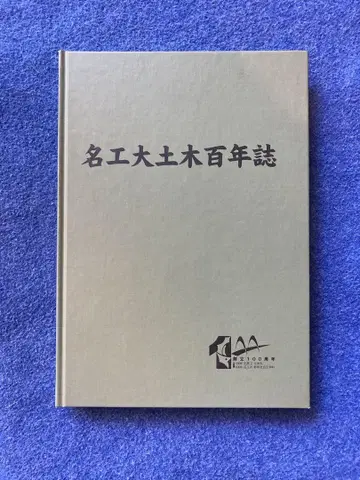 名工大土木百年誌
創立100周年